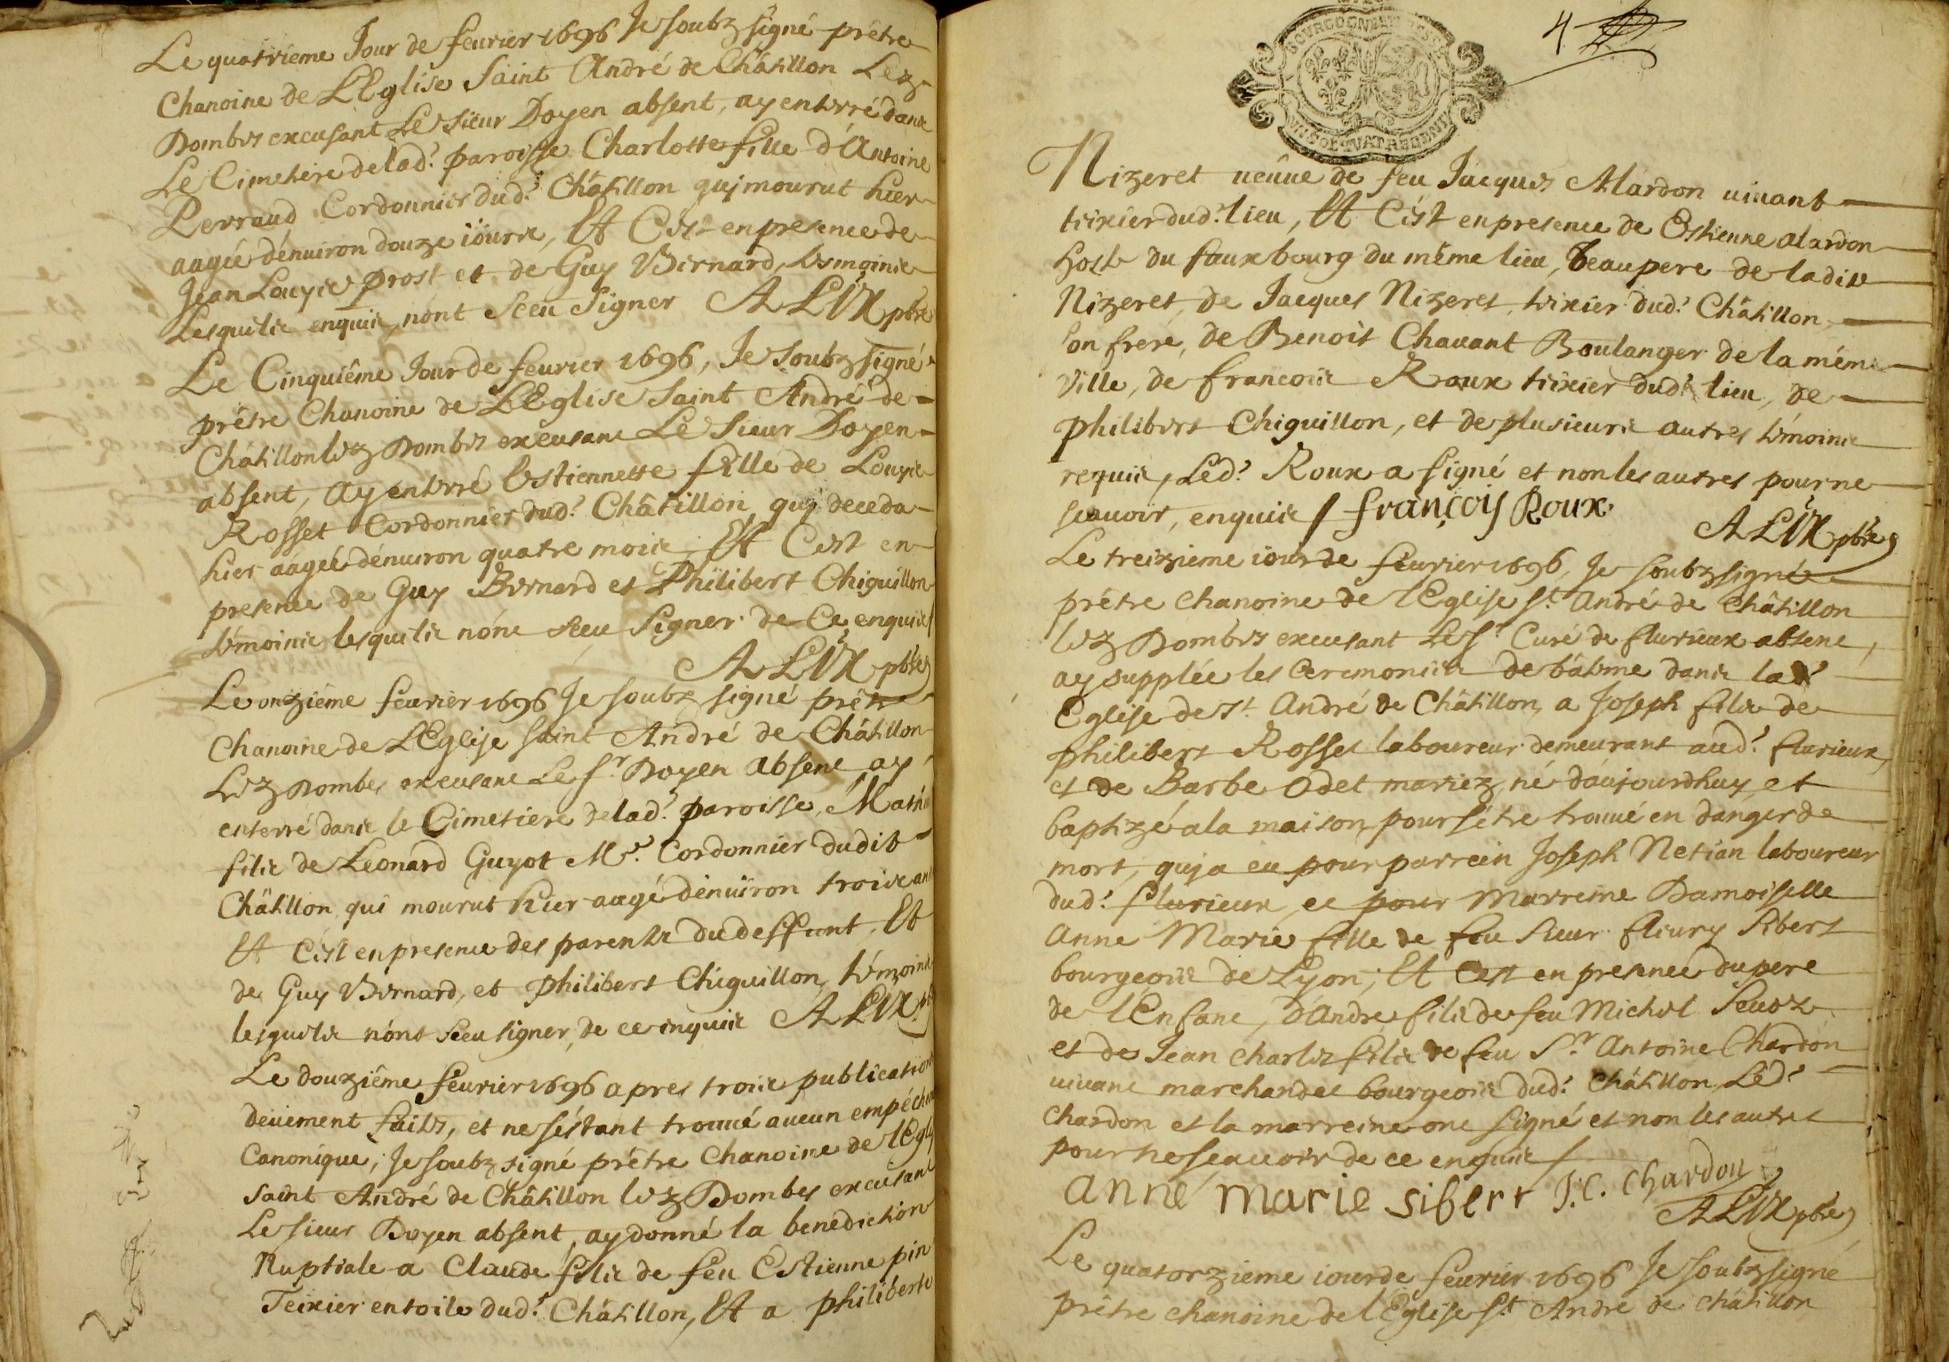 Le quatriéme Jour de feurier 1696 Je soubz signé prêtre
Chanoine de L'Eglise Saint André de Châtillon Lez
Dombes excusant Le Sieur Doyen absent, ay enterré dans
Le Cimetiere de lad.^t paroisse Charlotte fille d'Antoine
Perraud Cordonnier dud.^t Châtillon quj mourut hier
aagée dénuiron douze iours, Et C'est en presence de
Jean Louys prost et de Guy Bernard, tesmoins
Lesquels enquis, nont sceu Signer ALIX pbre
Le Cinquiême Jour de feurier 1696, Je Soubz signé
prêtre Chanoine de L'Eglise Saint André de
Châtillon lez Dombes excusant Le Sieur Doyen
absent, ay enterré Estiennette fille de Louys
Rosset Cordonnier dud.^t Châtillon, quj deceda
hier aagée dénuiron quatre mois, Et C'est en
presence de Guy Bernard et Philibert Chiguillon
témoins lesquels nónt sceu Signer de Ce enquis
ALIX pbre
Le onziéme feurier 1696 Je soubz signé prêtre
Chanoine de L'Eglise saint André de Châtillon
Lez Dombes excusant Le S.^r Doyen absent ay
enterré dans le Cimetiere de lad.^t paroisse, Mathi
fils de Leonard Guyot M.^e Cordonnier dudit
Châtillon qui mourut hier aagé dénuiron trois an
Et C'est en presence des parents du deffunt, Et
de Guy Bernard, et philibert Chiguillon, témoins
lesquels nónt sceu signer, de ce enquis ALIX pb
Le douziême feurier 1696 apres trois publication
deuement faites, et ne s'éstant trouué aucun empéchem
Canonique; Je soubz signé prêtre Chanoine de l'Egli
saint André de Châtillon lez Dombes excusant
Le sieur Doyen absent, ay donné la benediction
Nuptiale a Claude fils de feu Estienne pin
Teixier en toile dud.^t Châtillon, Et a philiberte
4
BOURGOGNE
Nizeret ueûue de feu Jacques Alardon uiuant
teixier dud.^t lieu, Et C'ést en presence de Estienne alardon
hoste du fauxbourg du même lieu, beaupere de ladite
Nizeret, de Jacques Nizeret, teixier dud.^t Châtillon
son frere, de Benoit Chauant Boulanger de la mémе
ville, de francois Roux teixier dud.^t lieu, de
philibert Chiguillon, et de plusieurs autres témoins
requis, Led.^t Roux a signé et non les autres pour ne
scauoir, enquis / françois Roux
ALIX pbre
Le treizieme iour de feurier 1696, Je soubz signé
prétre chanoine de l'Eglise S.^t André de Châtillon
lez Dombes excusant Le S.^r Curé de flurieux absent,
ay supplée les Ceremonies de bâtême dans lad.^t
Eglise de S.^t André de Châtillon, a Joseph fils de
philibert Rosset laboureur demeurant aud.^t flurieux,
et de Barbe Odet mariez, né d'aujourdhuy, et
baptizé a la maison, pour s'étre trouué en danger de
mort, quj a eu pour parrein Joseph Netian laboureur
dud.^t flurieux, et pour Marreine Damoiselle
Anne Marie fille de feu Sieur fleury Sibert
bourgeois de Lyon; Et C'est en presence du pere
de l'Enfant, d'André fils de feu Michel
et de Jean Charles fils de feu S.^r Antoine Chardon
uiuant marchand et bourgeois dud.^t Châtillon Led.^t
Chardon et la marreine ont signé et non les autres
pour ne sçauoir de ce enquis /
anne marie sibert J.C. Chardon
ALIX pbre
Le quatorzieme iour de feurier 1696 Je soubz signé
Prêtre chanoine de l'Eglise S.^t André de Châtillon